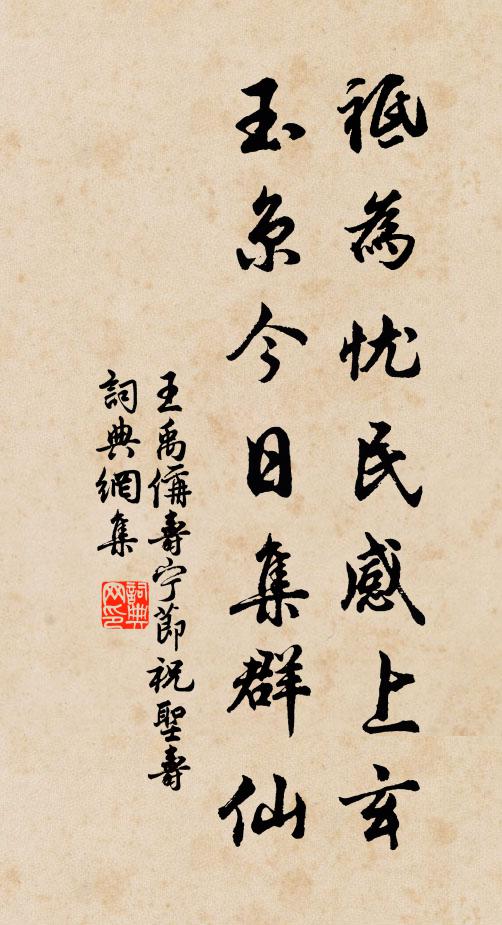 祗為忧民感上玄
玉京今日集群仙
王禹偁壽宁節祝聖壽
詞典網集
詞典网印